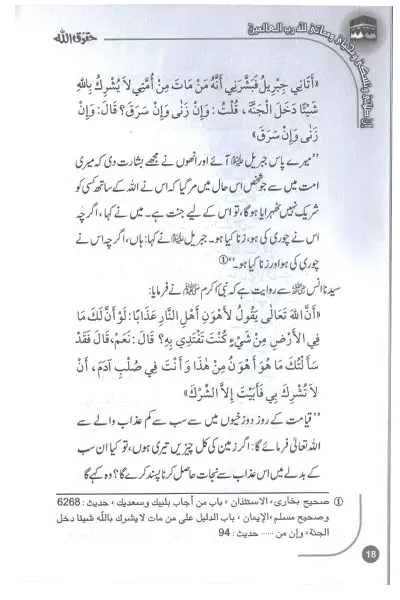 حقوق اللہ
إن صلاتي ونسكي ومحياي ومماتي لله رب العالمين
«أَتَانِي جِبْرِيلُ فَبَشَّرَنِي أَنَّهُ مَنْ مَاتَ مِنْ أُمَّتِي لَا يُشْرِكُ بِاللهِ
شَيْئًا دَخَلَ الْجَنَّةَ، قُلْتُ: وَإِنْ زَنٰى وَإِنْ سَرَقَ؟ قَالَ: وَإِنْ
زَنٰى وَإِنْ سَرَقَ»
’’میرے پاس جبریل علیہ السلام آئے اور انھوں نے مجھے بشارت دی کہ میری
امت میں سے جو شخص اس حال میں مر گیا کہ اس نے اللہ کے ساتھ کسی کو
شریک نہیں ٹھہرایا ہوگا، تو اس کے لیے جنت ہے۔ میں نے کہا، اگرچہ
اس نے چوری کی ہو، زنا کیا ہو۔ جبریل علیہ السلام نے کہا: ہاں، اگرچہ اس نے
چوری کی ہو اور زنا کیا ہو۔‘‘①
سیدنا انس رضی اللہ عنہ سے روایت ہے کہ نبی اکرم ﷺ نے فرمایا:
«أَنَّ اللهَ تَعَالٰى يَقُولُ لِأَهْوَنِ أَهْلِ النَّارِ عَذَابًا: لَوْ أَنَّ لَكَ مَا
فِي الْأَرْضِ مِنْ شَيْءٍ كُنْتَ تَفْتَدِي بِهِ؟ قَالَ: نَعَمْ، قَالَ فَقَدْ
سَأَلْتُكَ مَا هُوَ أَهْوَنُ مِنْ هٰذَا وَأَنْتَ فِي صُلْبِ آدَمَ، أَنْ
لَا تُشْرِكَ بِي فَأَبَيْتَ إِلَّا الشِّرْكَ»
’’قیامت کے روز دوزخیوں میں سے سب سے کم عذاب والے سے
اللہ تعالیٰ فرمائے گا: اگر زمین کی کل چیزیں تیری ہوں، تو کیا ان سب
کے بدلے میں اس عذاب سے نجات حاصل کرنا پسند کرے گا؟ وہ کہے گا
① صحیح بخاری، الاستئذان ، باب من أجاب بلبیك وسعدیك ، حدیث : 6268
وصحیح مسلم، الإیمان ، باب الدلیل علی من مات لا یشرك باللّٰہ شیئا دخل
الجنة، وإن من ..... حدیث : 94
18